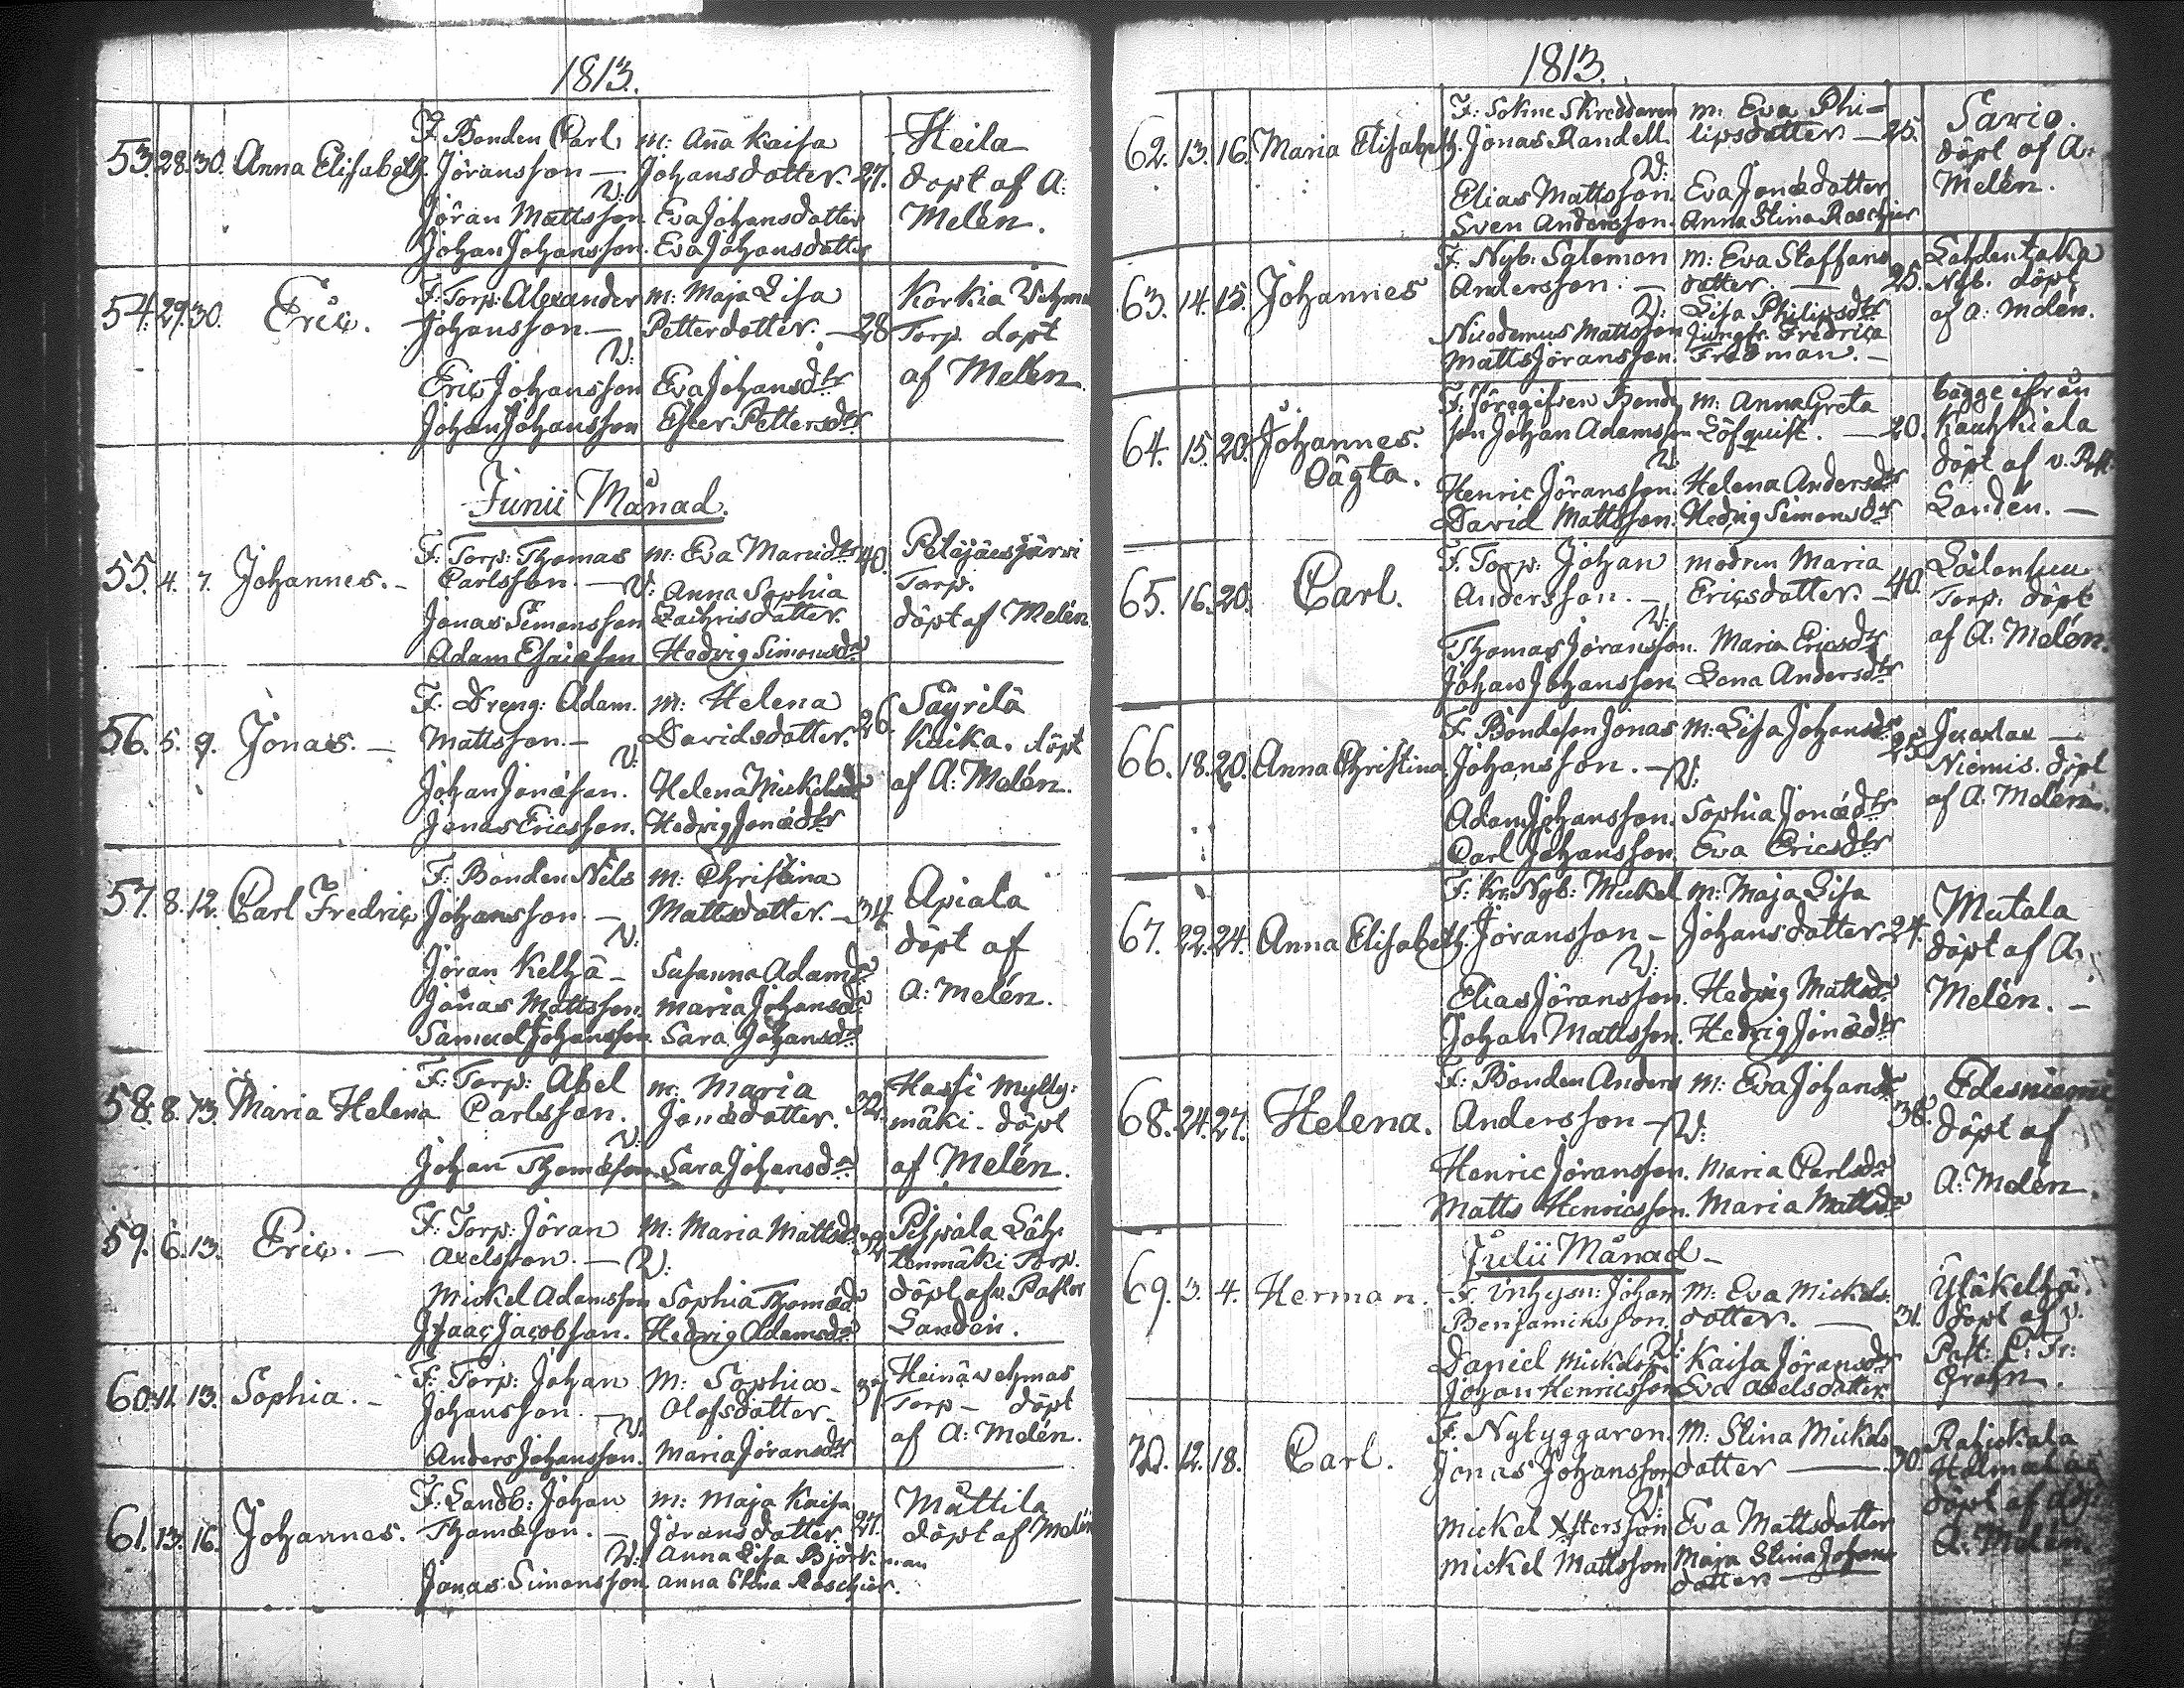 1813.
53. 28. 30. Anna Elisabeth.
F: Bonden Carl
Jöransson —
V:
Jöran Mattsson
Johan Johansson.
m: Aña Kaisa
Johansdotter. 27.
Eva Johansdotter
Eva Johansdotter
Heila
döpt af A:
Melén.
54. 29. 30. Eric.
F: Torp: Alexander
Johansson. —
V:
Eric Johansson
Johan Johansson
m: Maja Lisa
Petterdotter. — 28
Eva Johansdtr
Ester Pettersdtr
Korkia
Torp. döpt
af Melén.
Junii Månad.
55. 4. 7. Johannes. —
F: Torp: Thomas
Carlsson. — V:
Jonas Simonsson
Adam Esaiæson
m: Eva 40.
Anna Sophia
Zachrisdotter.
Hedvig Simonsdr
Petäjäesjärvi
Torp.
döpt af Melén
56. 5. 9. Jonas. —
F: Dreng: Adam.
Mattsson. —
V:
Johan Jonæson.
Jonas Ericsson.
m: Helena
Davidsdotter. 26.
Helena Mickelsdr
Hedvig Jonædtr
Säyrilä
Kaika. döpt
af A: Melén.
57. 8. 12. Carl Fredric
F: Bonden Nils
Johansson. —
V:
Jöran Kelhä —
Jonas Mattsson
Samuel Johansson
m: Christina
Mattsdotter. — 34
Susanna Adamsdr
Maria Johansdr
Sara Johansdr
Apiala
döpt af
A: Melén.
58. 8. 13. Maria Helena
F: Torp: Abel
Carlsson.
V:
Johan Thomæson
m: Maria
Jonædotter. 32.
Sara Johansdr
Hassi Mylly:
mäki. döpt
af Melén.
59. 6. 13. Eric. —
F: Torp: Jöran
Axelsson. — V:
Mickel Adamsson
Isaac Jacobson.
M: Maria Mattsdr
Sophia Thomædr
Hedvig Adamsdr
Pispala Läh:
tenmäki Torp.
döpt af v. Pastor
Landén.
60. 11. 13. Sophia. —
F: Torp: Johan
Johansson. —
V:
Anders Johansson.
M: Sophia —
Olofsdotter —
Maria Jöransdtr
Heinäwehmas
Torp — döpt
af A: Melén.
61. 13. 16. Johannes.
F: Landb: Johan
Thomæson. —
V:
Jonas Simonsson.
M: Maja Kaisa
Jöransdotter. 27.
Anna Lisa Björkman
Anna Stina Roschier.
Mattila
döpt af Melén
1813.
62. 13. 16. Maria Elisabeth.
F: Sokne Skreddaren
Jonas Randell
V:
Elias Mattsson.
Sven Andersson.
m: Eva Phi=
lipsdotter — 25.
Eva Jonædotter
Anna Stina Roschier
Sario.
döpt af A:
Melén.
63. 14. 15. Johannes
F: Nyb: Salomon
Andersson. —
V:
Nicodemus Mattsson
Matts Jöransson.
M: Eva Staffans
dotter. — 25.
Lisa Philipsdtr
Jungfr. Fredrica
Fredman. —
Lahdentaka
Nyb. döpt
af A: Melén.
64. 15. 20. Johannes.
Oägta.
F: Föregifven Bonde
son Johan Adamsson
V:
Henric Jöransson.
David Mattsson.
M: Anna Greta
Löfquist. — 20.
Helena Andersdtr
Hedvig Simonsdtr
bägge ifrån
Kauhkiala
döpt af v. Past:
Landén. —
65. 16. 20. Carl.
F: Torp: Johan
Andersson. —
V:
Thomas Jöransson.
Johan Johansson
modren Maria
Ericsdotter. — 40.
Maria Ericsdtr
Lena Andersdtr
Torp: döpt
af A: Melén.
66. 18. 20. Anna Christina
F: Bondeson Jonas
Johansson. — V:
Adam Johansson.
Carl Johansson
M: Lisa Johansdtr 25
Sophia Jonædtr
Eva Ericsdtr
Niemis. döpt
af A: Melén.
67. 22. 24. Anna Elisabeth.
F: Kr: Nyb: Mickel
Jöransson —
V:
Elias Jöransson.
Johan Mattsson.
M: Maja Lisa
Johansdotter 24.
Hedvig Mattsdr
Hedvig Jonædtr
Mutala
döpt af A:
Melén. —
68. 24. 27. Helena.
F: Bonden Anders
Andersson — V:
Henric Jöransson.
Matts Henricsson.
M: Eva Johansdtr
Maria Carlsdr
Maria Mattsdr
Edesniemi
döpt af
A: Melén.
Julii Månad —
69. 3. 4. Herman.
F: Inhysn: Johan
Benjaminsson.
V:
Daniel Mickelss:
Johan Henricsson
M: Eva Mickels
dotter. — 31.
Kaisa Jöransdtr
Eva Axelsdotter
Yläkelhä.
döpt af v.
Past: C: Fr:
Grahn.
70. 12. 18. Carl.
F: Nybyggaren
Jonas Johansson
V:
Mickel
Mickel Mattsson
M: Stina Mickels
dotter — 30.
Eva Mattsdotter
Maja Stina Johans
dotter —
Rahiskala
döpt af
A: Melén.